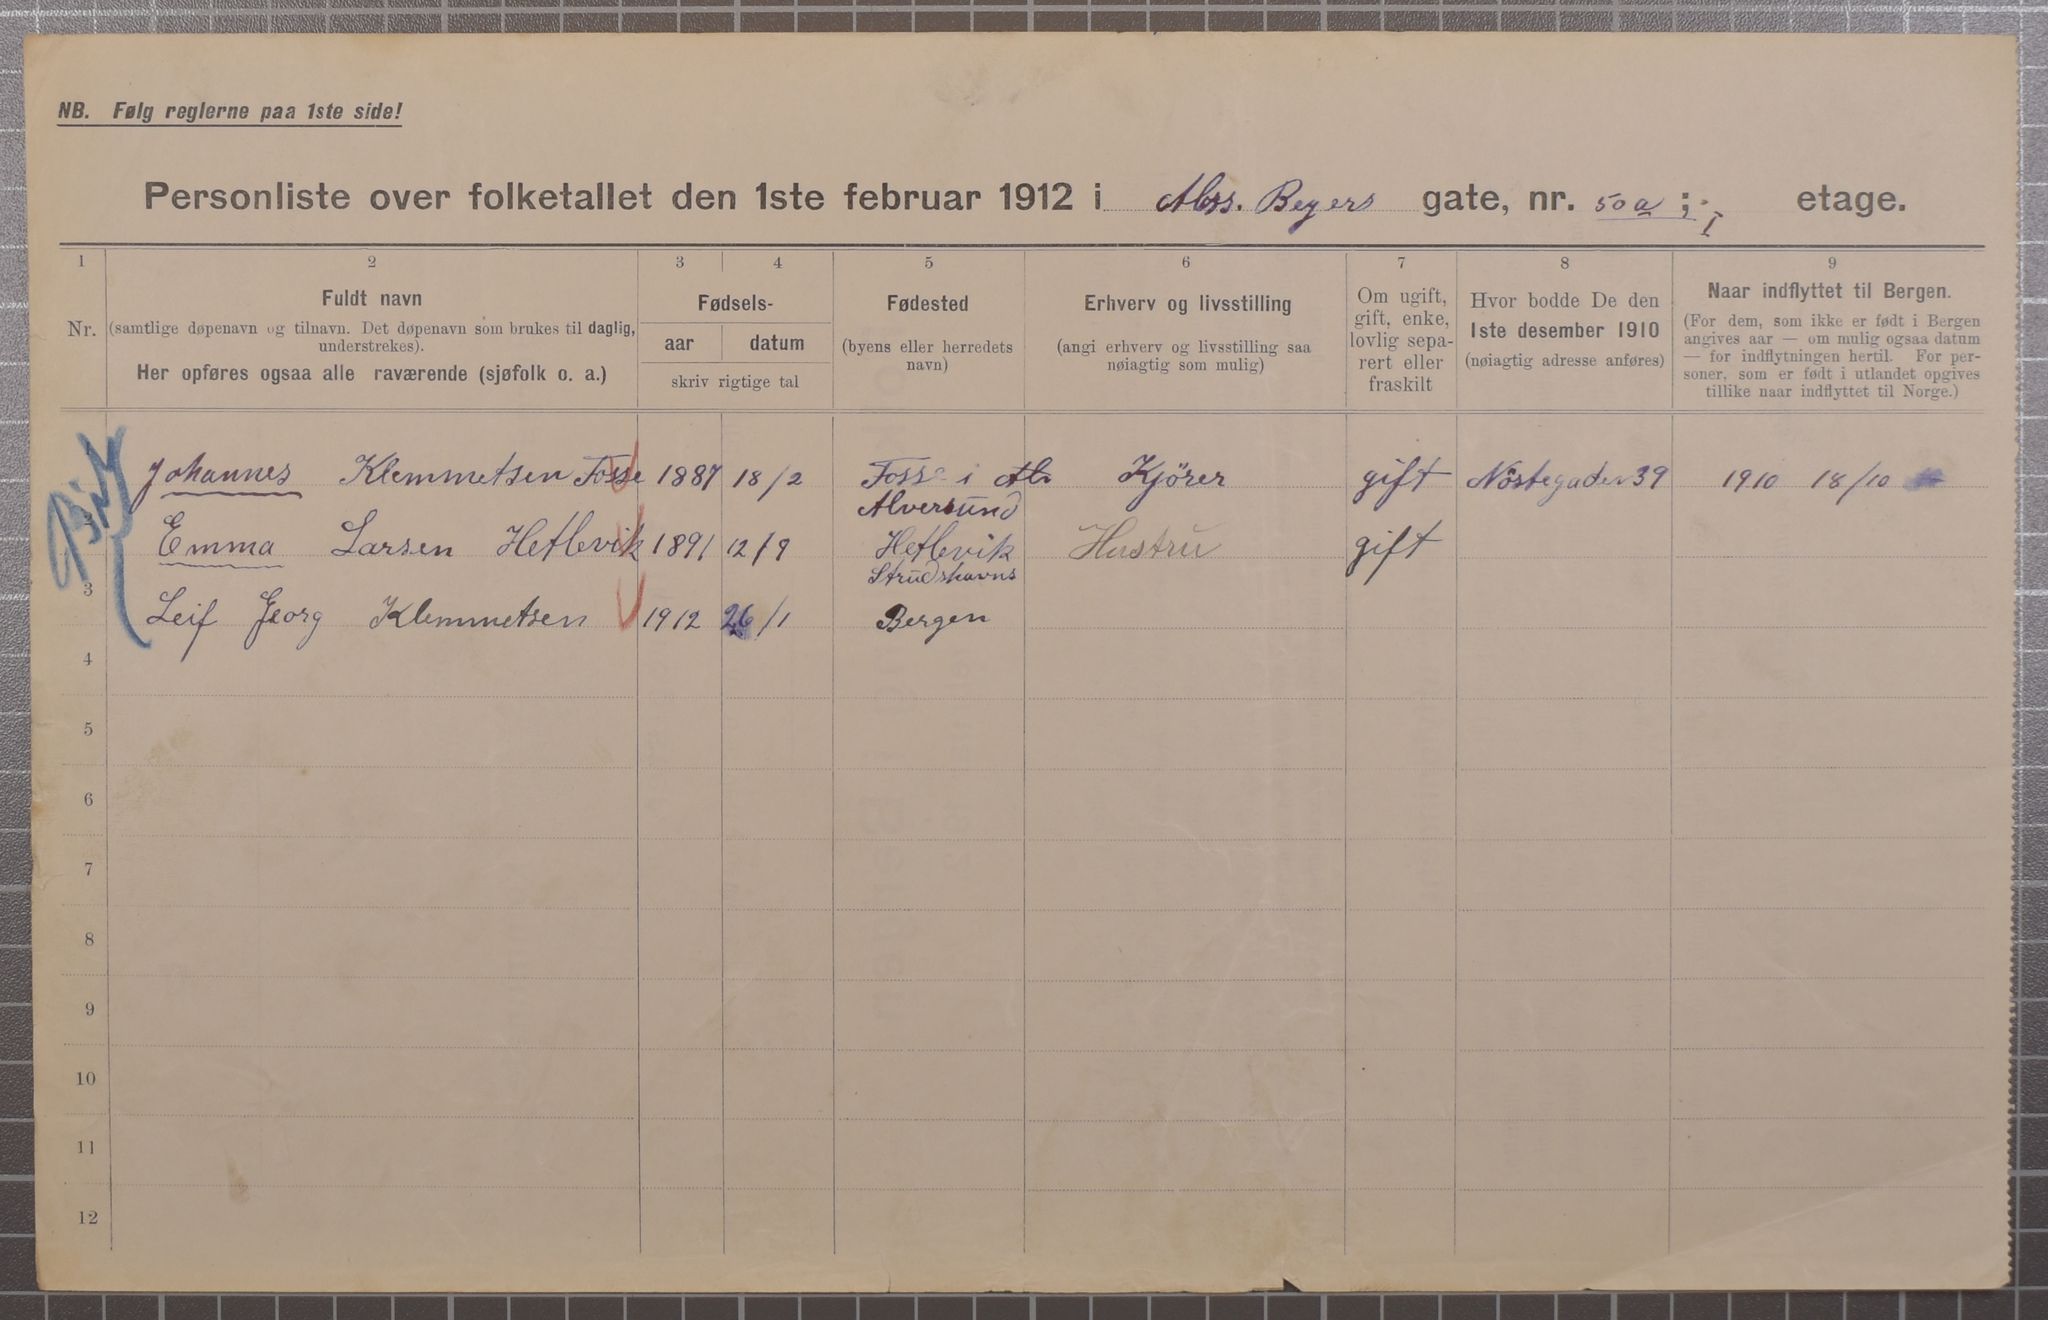 NB. Følg reglerne paa 1ste side!
Personliste over folketallet den 1ste februar 1912 i Abs. Beyers gate, nr. 50 a ; I etage.
1 2 3 4 5 6 7 8 9
Nr.
Fuldt navn
(samtlige døpenavn og tilnavn. Det døpenavn som brukes til daglig,
understrekes).
Her opføres ogsaa alle raværende (sjøfolk o. a.)
Fødsels-
aar datum
skriv rigtige tal
Fødested
(byens eller herredets
navn)
Erhverv og livsstilling
(angi erhverv og livsstilling saa
nøiagtig som mulig)
Om ugift,
gift, enke,
lovlig sepa-
rert eller
fraskilt
Hvor bodde De den
1ste desember 1910
(nøiagtig adresse anføres)
Naar indflyttet til Bergen.
(For dem, som ikke er født i Bergen
angives aar — om mulig ogsaa datum
— for indflytningen hertil. For per-
soner, som er født i utlandet opgives
tillike naar indflyttet til Norge.)
Johannes Klemmetsen Fosse 1887 18/2 Fosse i Kjörer gift Nöstegaden 39 1910 18/10
Alversund
2 Emma Larsen Hetlevik 1891 12/9 Hetlevik Hustru gift
Strudshavns
3 Leif Georg Klemmetsen 1912 26/1 Bergen
4
5
6
7
8
9
10
11
12